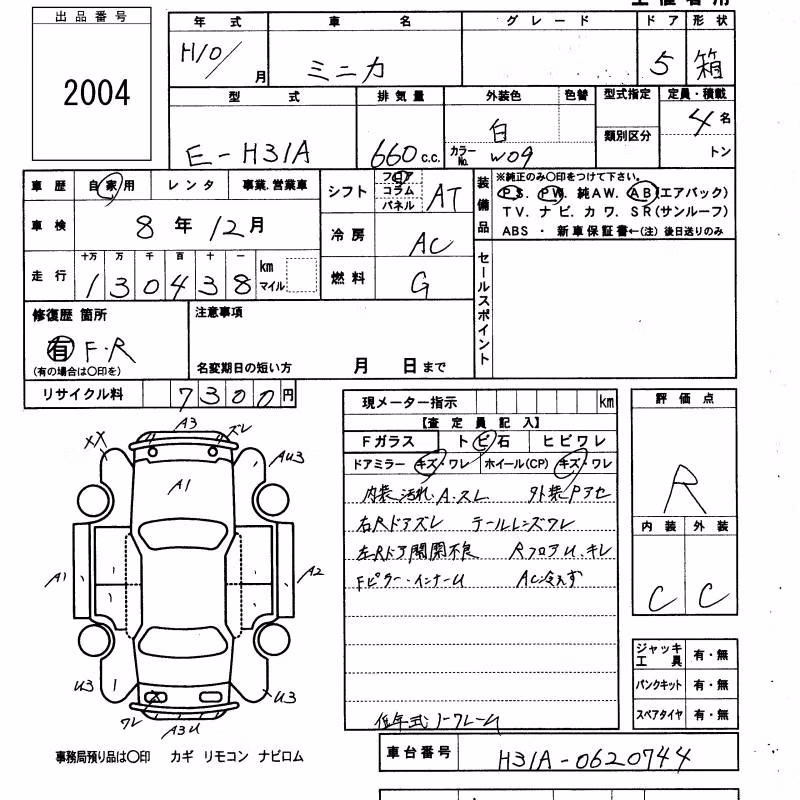 出品番号
2004
年式 車名 グレード ドア 形状
H10/ 月 ミニカ 5 箱
型式 排気量 外装色 色替 型式指定 定員・積載
E-H31A 660 c.c. 白 カラーNo. W09 類別区分 4名 トン
車歴 自家用 レンタ 事業、営業車
車検 8年12月
走行 十万 万 千 百 十 一
130438 km マイル
シフト フロア コラム パネル AT
冷房 AC
燃料 G
装備品 ※純正のみ〇印をつけて下さい。
PS. PW. 純AW. AB(エアバック)
TV. ナビ. カワ. SR(サンルーフ)
ABS ・ 新車保証書←(注) 後日送りのみ
セールスポイント
修復歴 箇所
有 F・R
(有の場合は〇印を)
注意事項
名変期日の短い方 月 日まで
リサイクル料 7300円
現メーター指示 km
【査定員記入】
Fガラス トビ石 ヒビワレ
ドアミラー キズ・ワレ ホイール(CP) キズ・ワレ
内装 汚れ A.スレ 外装Pアセ
右Rドアズレ テールレンズワレ
左Rドア開閉不良 RフロアU.キレ
Fピラー・インナーU AC冷えず
低年式ノークレーム
評価点
R
内装 外装
C C
XX A3 ズレ
AU3
A1
A1 A2
U3 U3
ワレ A3U
ジャッキ工具 有・無
パンクキット 有・無
スペアタイヤ 有・無
事務局預り品は〇印 カギ リモコン ナビロム
車台番号 H31A-0620744